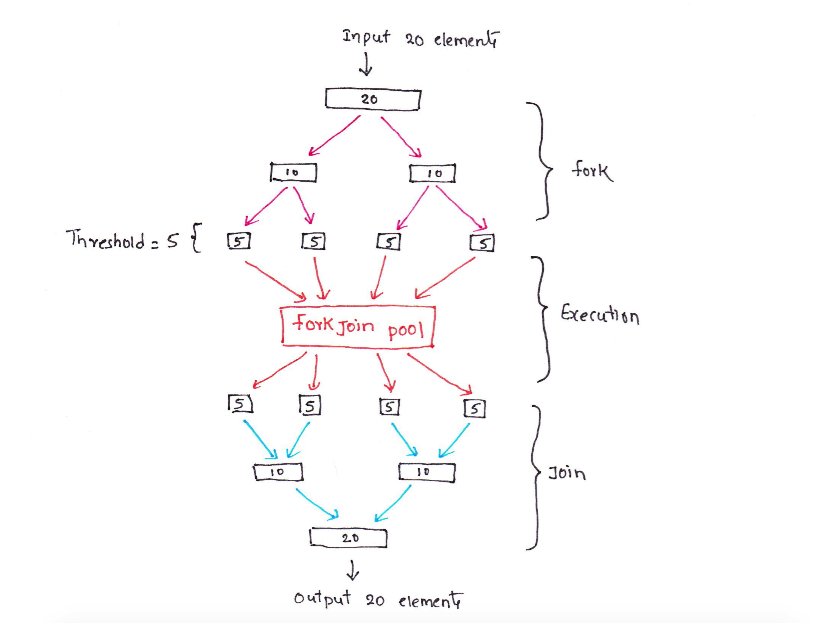 Input 20 elements
20
10 10
fork
Threshold = 5 { 5 5 5 5
fork Join pool
Execution
5 5 5 5
10 10
Join
20
Output 20 elements